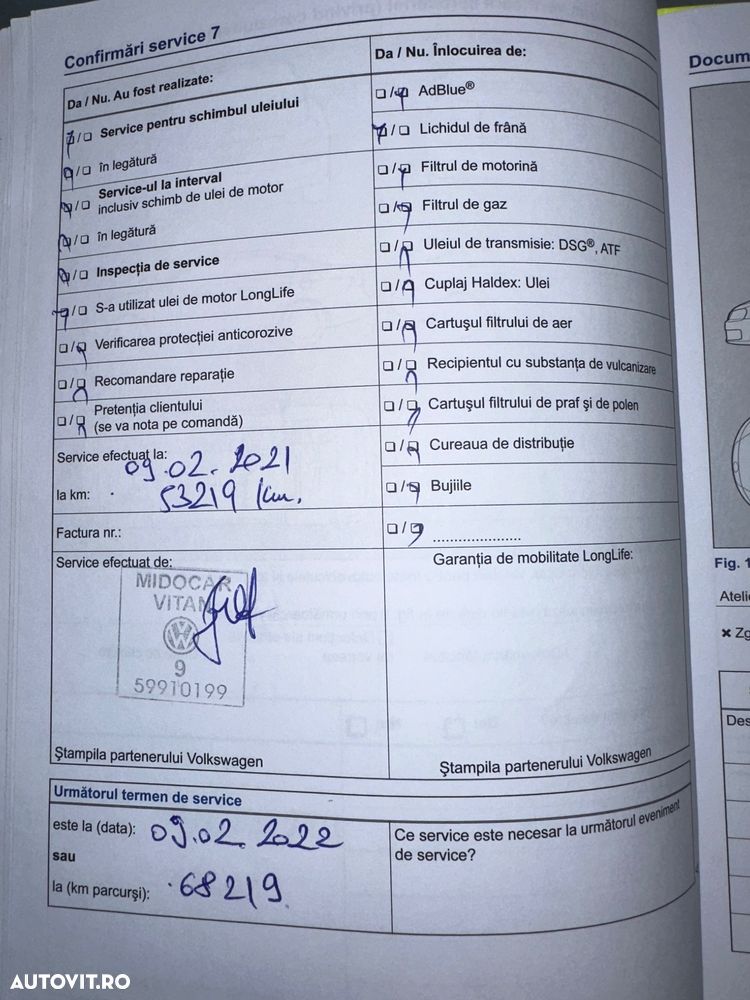 Confirmări service 7
Da / Nu. Au fost realizate:
❏/❏ Service pentru schimbul uleiului
❏/❏ în legătură
❏/❏ Service-ul la interval
inclusiv schimb de ulei de motor
❏/❏ în legătură
❏/❏ Inspecția de service
❏/❏ S-a utilizat ulei de motor LongLife
❏/❏ Verificarea protecției anticorozive
❏/❏ Recomandare reparație
❏/❏ Pretenția clientului
(se va nota pe comandă)
Service efectuat la:
09.02.2021
la km: 53219 km.
Factura nr.:
Service efectuat de:
MIDOCAR
VITAN
9
59910199
Ștampila partenerului Volkswagen
Da / Nu. Înlocuirea de:
❏/❏ AdBlue®
❏/❏ Lichidul de frână
❏/❏ Filtrul de motorină
❏/❏ Filtrul de gaz
❏/❏ Uleiul de transmisie: DSG®, ATF
❏/❏ Cuplaj Haldex: Ulei
❏/❏ Cartușul filtrului de aer
❏/❏ Recipientul cu substanța de vulcanizare
❏/❏ Cartușul filtrului de praf și de polen
❏/❏ Cureaua de distribuție
❏/❏ Bujiile
❏/❏ ......................
Garanția de mobilitate LongLife:
Ștampila partenerului Volkswagen
Următorul termen de service
este la (data): 09.02.2022
sau
la (km parcurși): 68219
Ce service este necesar la următorul eveniment
de service?
Docum
Fig. 1
Atelie
× Zg
Des
AUTOVIT.RO